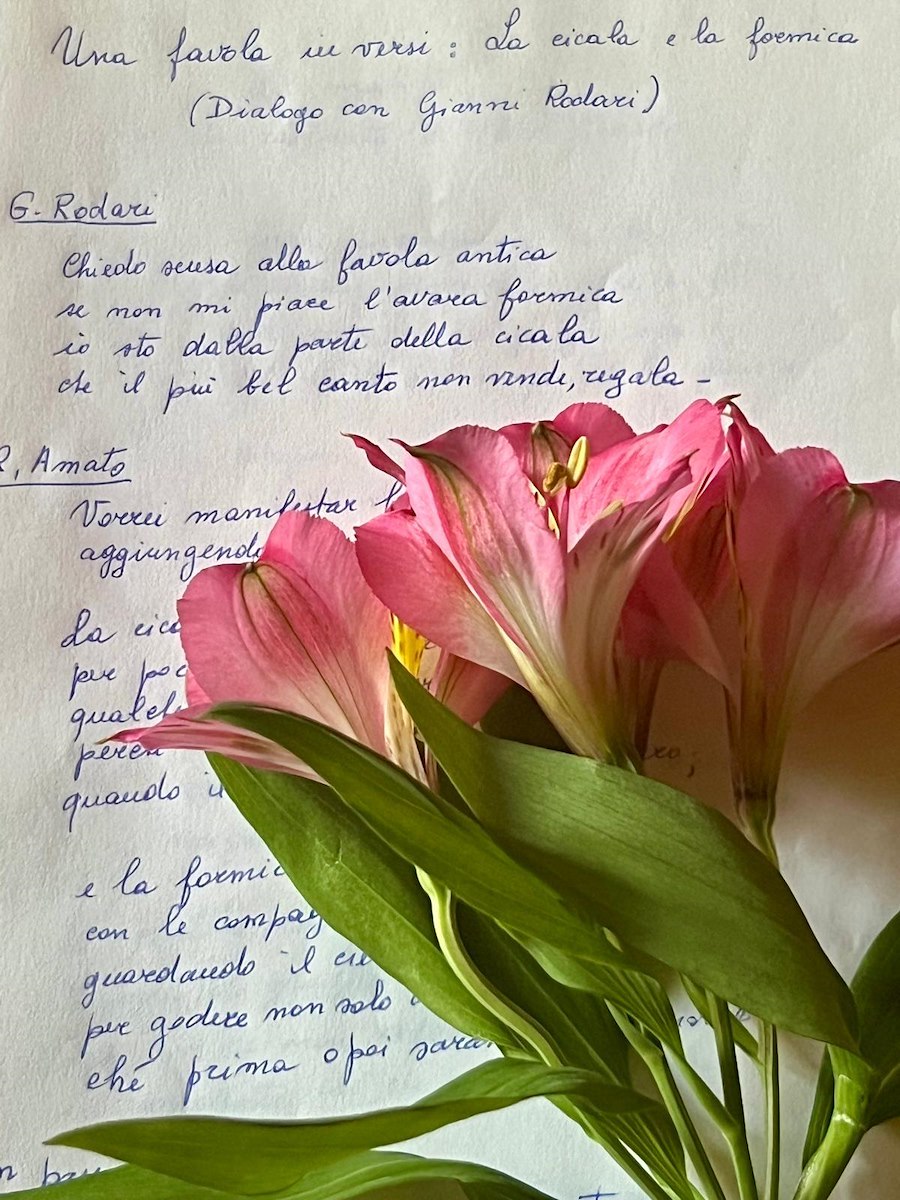 Una favola in versi: La cicala e la formica
(Dialogo con Gianni Rodari)
G. Rodari
Chiedo scusa alla favola antica
se non mi piace l'avara formica
io sto dalla parte della cicala
che il più bel canto non vende, regala -
R. Amato
Vorrei manifestar
aggiungendo
La cica
per poc
qualch
perch
quando i
e la formic
con le compag
guardando il cie
per godere non solo
ché prima o poi saran